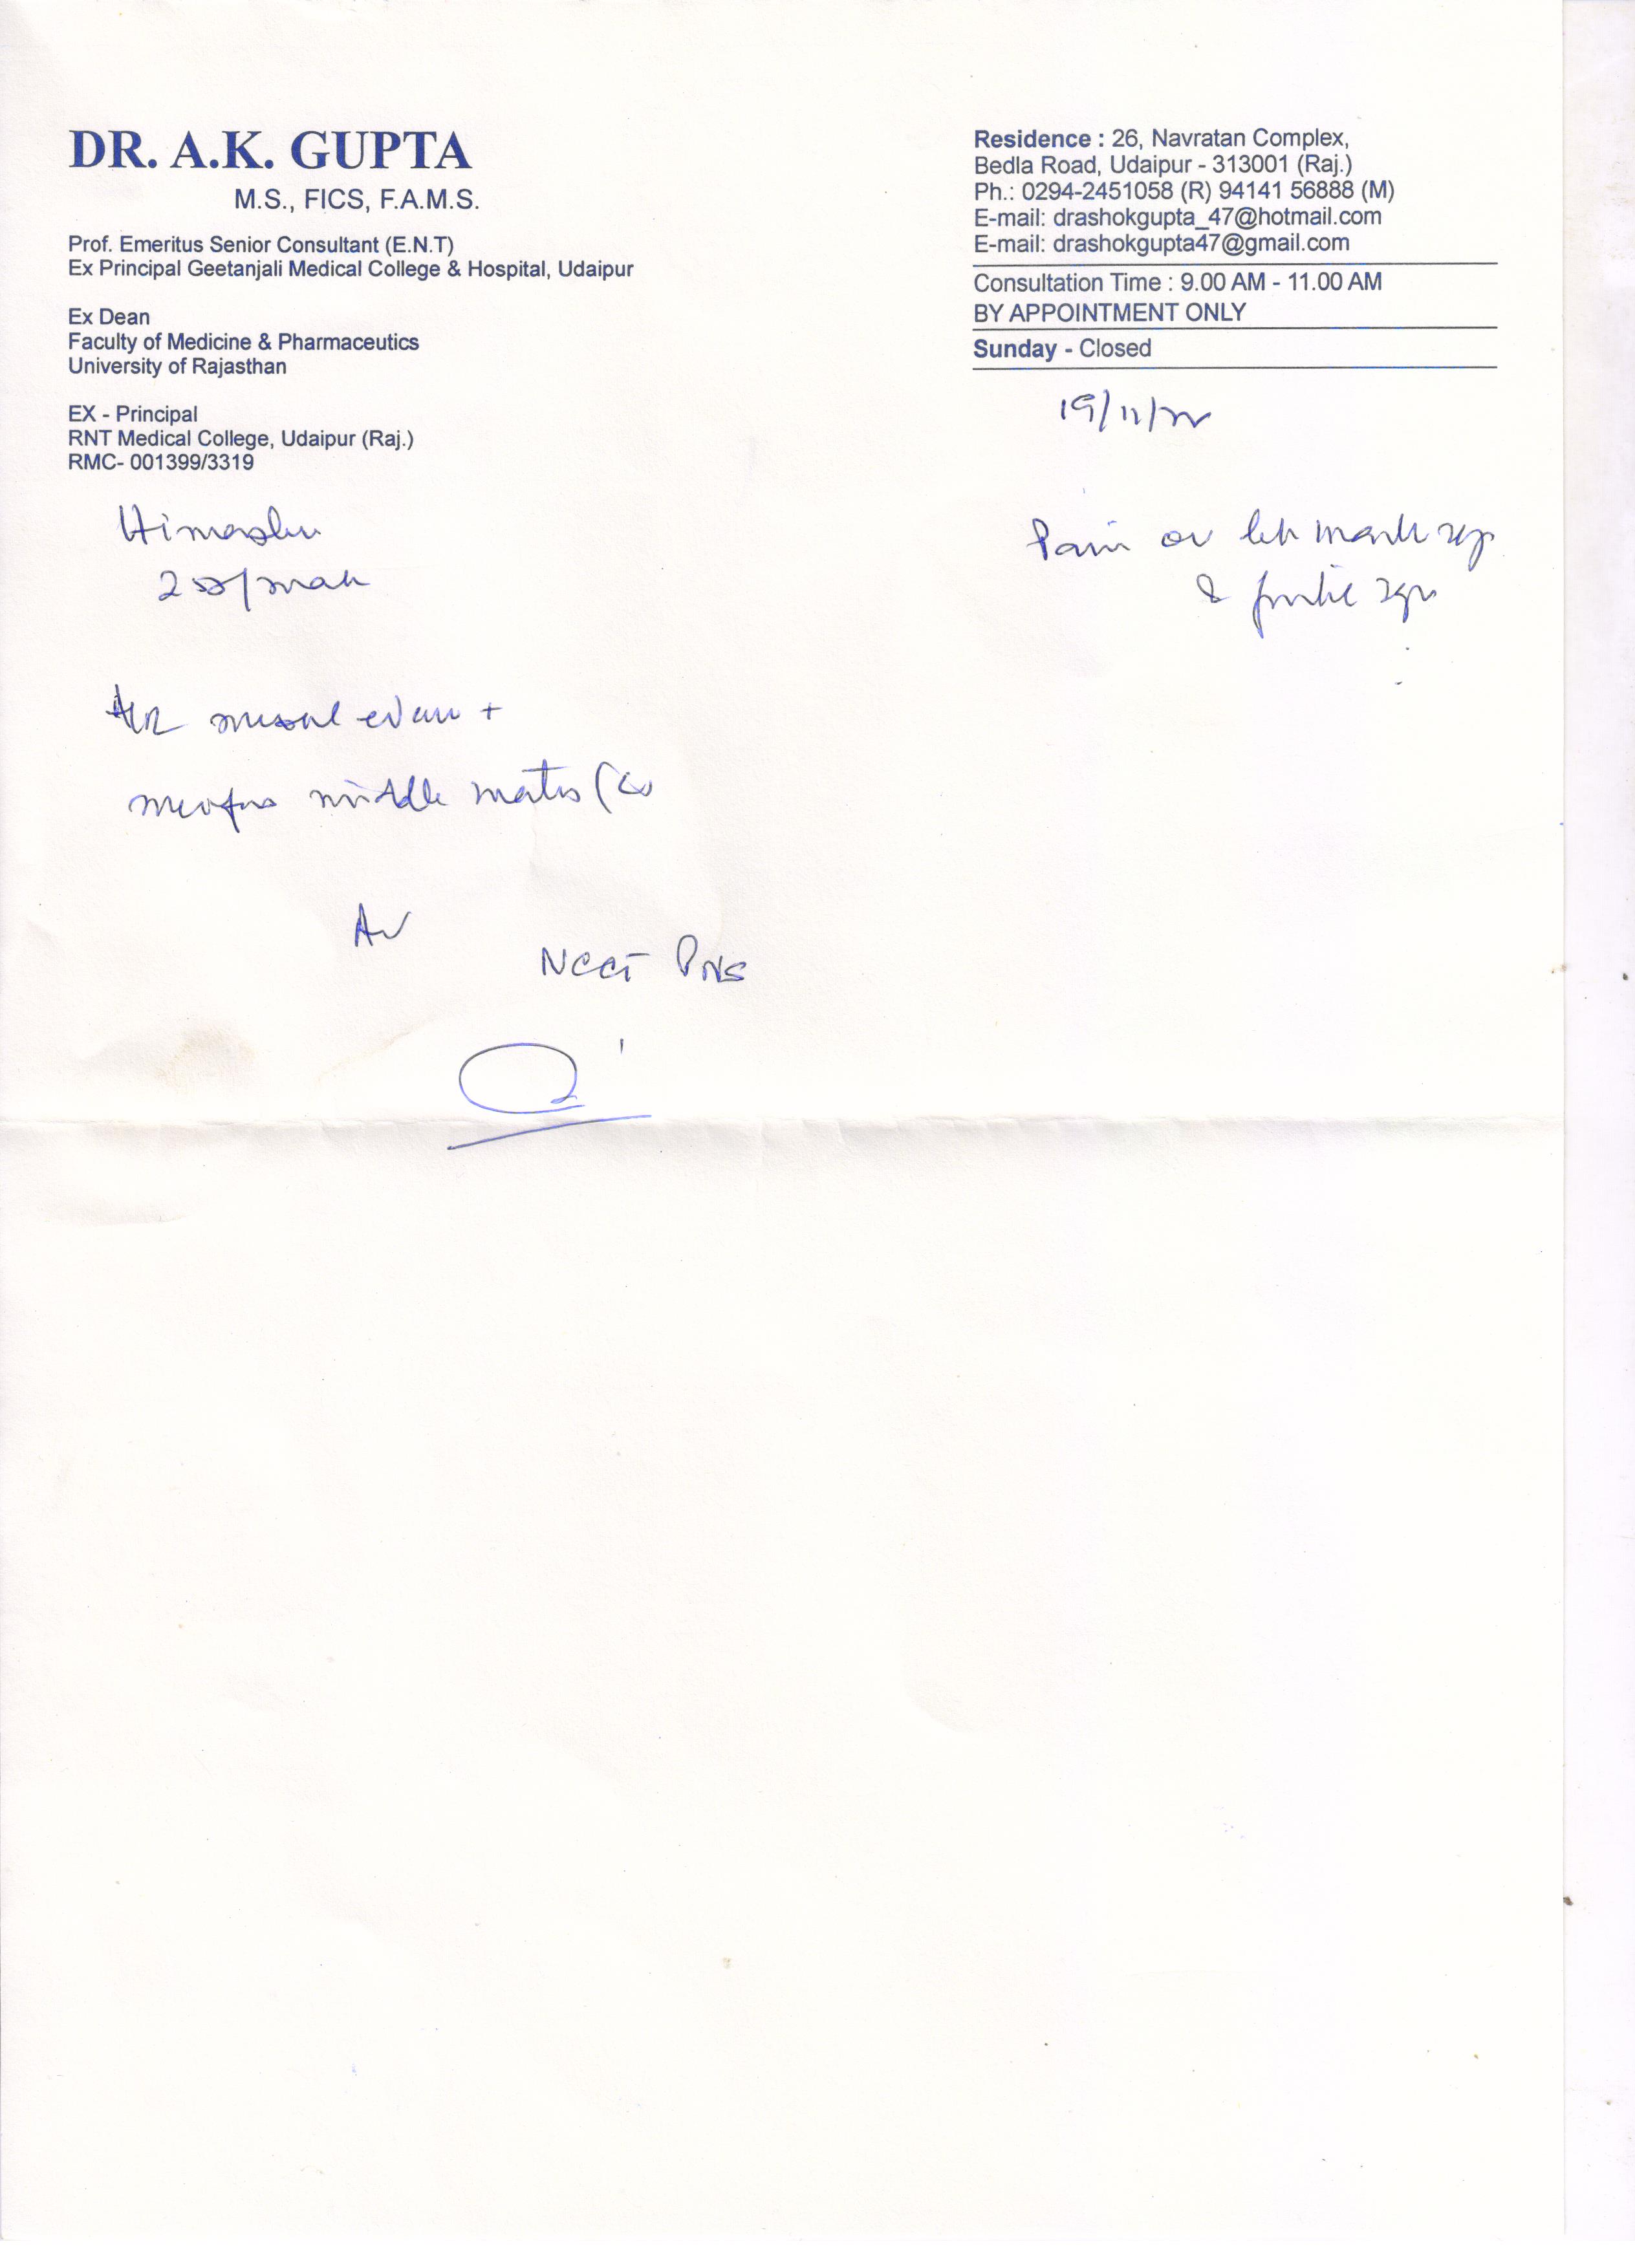 DR. A.K. GUPTA
M.S., FICS, F.A.M.S.
Prof. Emeritus Senior Consultant (E.N.T)
Ex Principal Geetanjali Medical College & Hospital, Udaipur
Ex Dean
Faculty of Medicine & Pharmaceutics
University of Rajasthan
EX - Principal
RNT Medical College, Udaipur (Raj.)
RMC- 001399/3319
Residence : 26, Navratan Complex,
Bedla Road, Udaipur - 313001 (Raj.)
Ph.: 0294-2451058 (R) 94141 56888 (M)
E-mail: drashokgupta_47@hotmail.com
E-mail: drashokgupta47@gmail.com
Consultation Time : 9.00 AM - 11.00 AM
BY APPOINTMENT ONLY
Sunday - Closed
19/11/22
Pain
&
+
middle
NCCT PNS